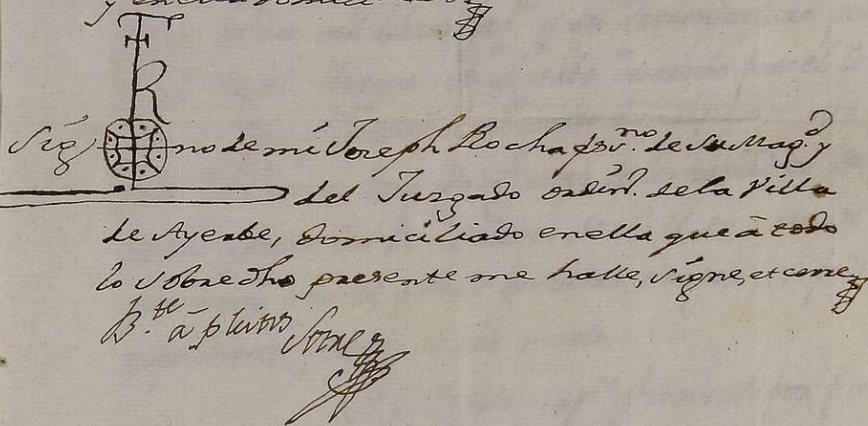 Sig no de mi Joseph Rocha Ess.no de Su Mag.d y
del Juzgado ordin.o de la Villa
de Ayerbe, domiciliado en ella que â todo
lo sobredho presente me halle, signe, et cerre
B.te â pleitos